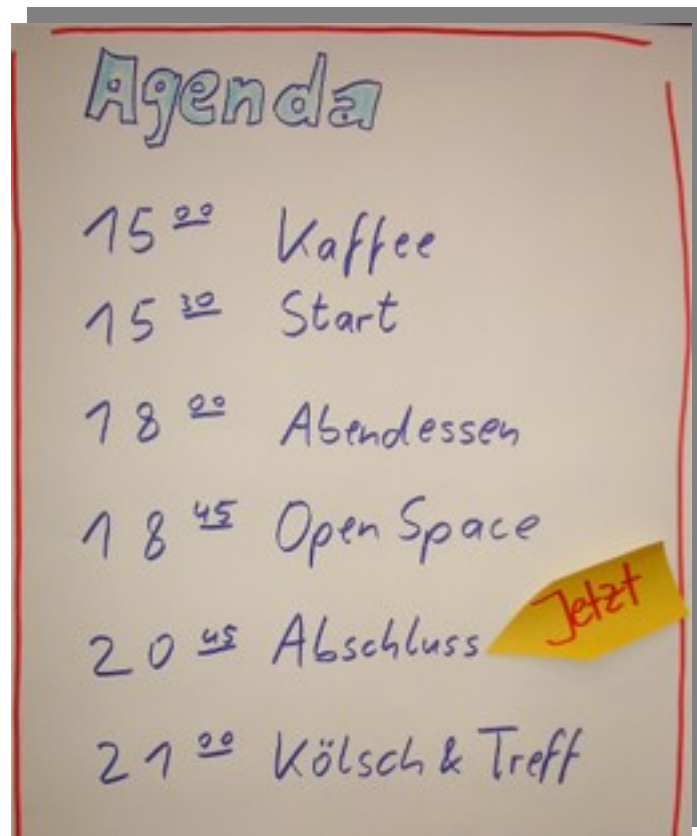 Agenda
15 00 Kaffee
15 30 Start
18 00 Abendessen
18 45 Open Space
20 45 Abschluss Jetzt
21 00 Kölsch & Treff